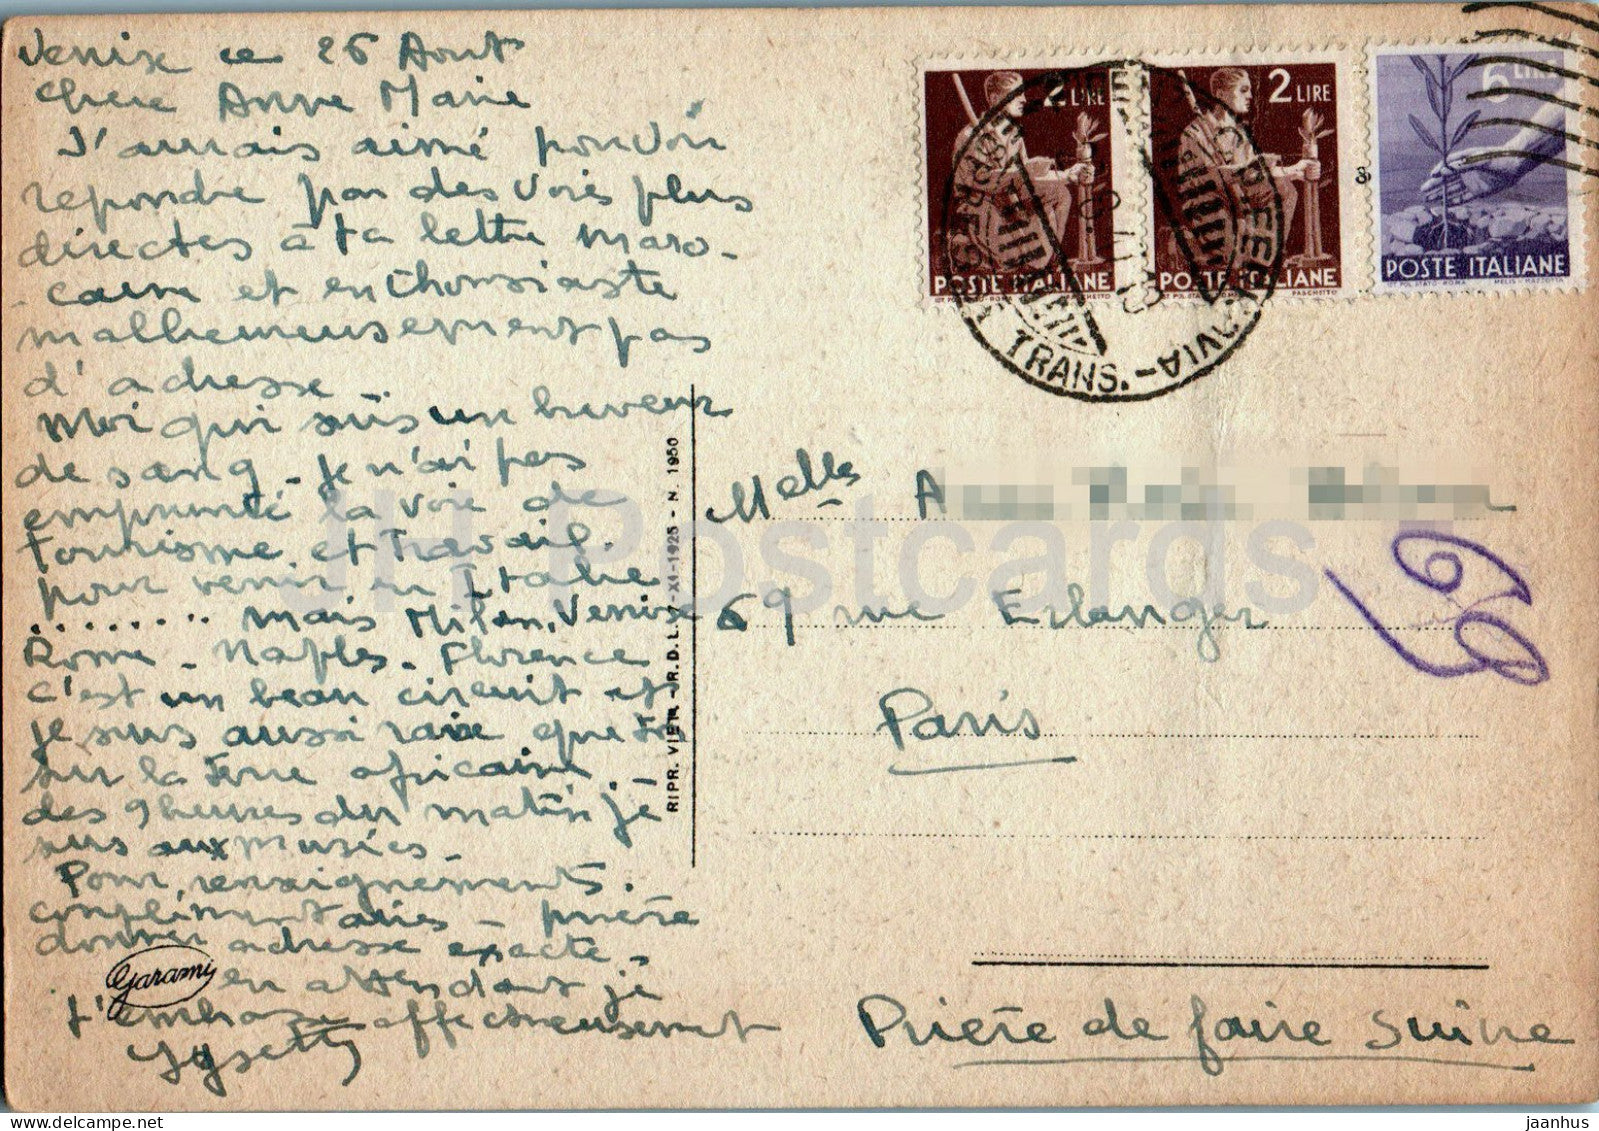 Venise ce 26 Aout
Chère Anne Marie
J'aurais aimé pouvoir
repondre par des voies plus
directes à ta lettre maro-
-caine et enthousiaste
malheureusement pas
d'adresse
Moi qui suis un buveur
de sang - Je n'ai pas
emprunté la voie de
Tourisme et Travail.
pour venir en Italie
........ mais Milan, Venise
Rome - Naples - Florence
c'est un beau circuit et
je suis aussi raie que toi
sur la Terre africaine. -
des 9 heures du matin je
suis aux musées -
Pour renseignements.
complimentaires - prière
donner adresse exacte,
en attendant je
t'embrasse affectueusement
Garami
RIPR. VIET. - R.D.L. 7-XI-1925 - N. 1950
2 LIRE
POSTE ITALIANE
IST. POL. STATO - ROMA PASCHETTO
2 LIRE
POSTE ITALIANE
IST. POL. STATO - ROMA PASCHETTO
6 LIRE
POSTE ITALIANE
IST. POL. STATO - ROMA MELIS - MAZZOTTA
TRANS.
Melle A
69 rue Erlanger
Paris
69
Prière de faire suivre
JH Postcards
jaanhus